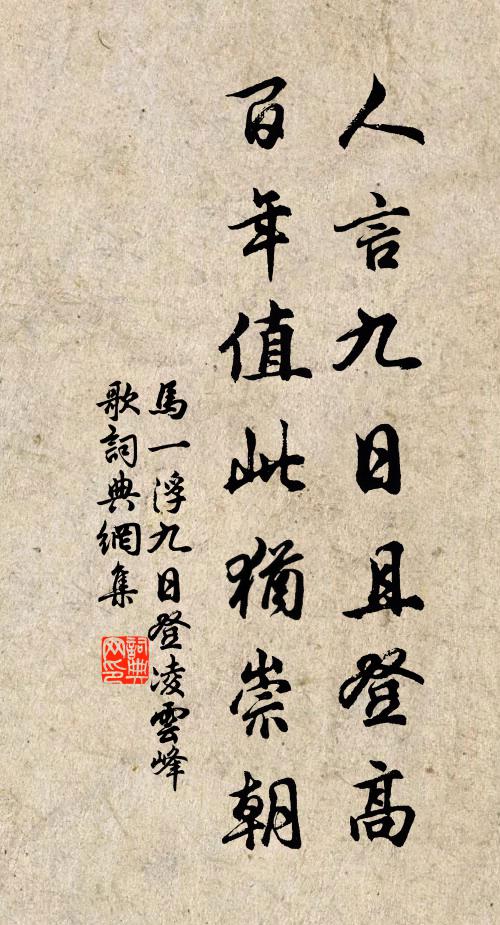 人言九日且登高
百年值此猶崇朝
馬一浮九日登凌雲峰
歌詞典網集
詞典網印